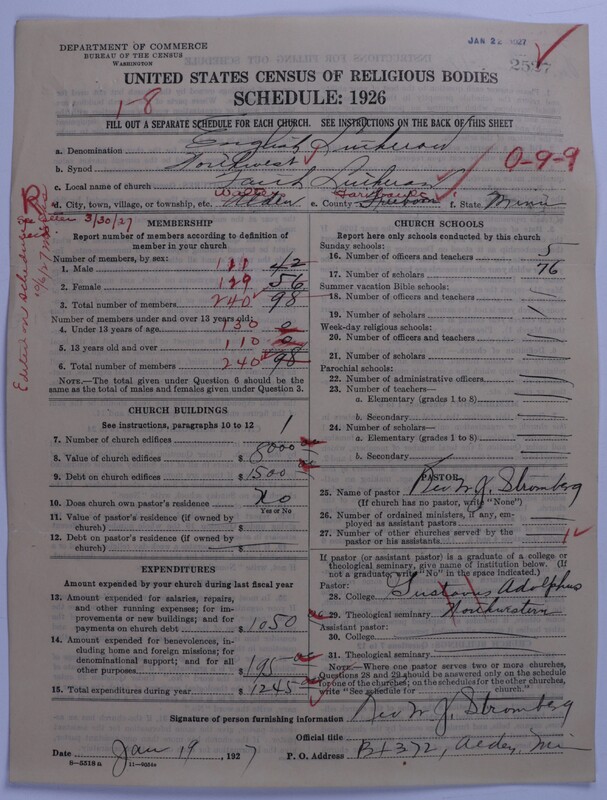 DEPARTMENT OF COMMERCE
BUREAU OF THE CENSUS
WASHINGTON
JAN 22 1927
2527
UNITED STATES CENSUS OF RELIGIOUS BODIES
SCHEDULE: 1926
1-8
FILL OUT A SEPARATE SCHEDULE FOR EACH CHURCH. SEE INSTRUCTIONS ON THE BACK OF THIS SHEET
a. Denomination English Lutheran
b. Synod Northwest
0-9-9
c. Local name of church Faith Lutheran
d. City, town, village, or township, etc. Alden e. County Freeborn f. State Minn
3/30/27
MEMBERSHIP
Report number of members according to definition of member in your church
Number of members, by sex:
1. Male 111 42
2. Female 129 56
3. Total number of members 240 98
Number of members under and over 13 years old:
4. Under 13 years of age 130 0
5. 13 years old and over 110
6. Total number of members 240 98
NOTE.—The total given under Question 6 should be the same as the total of males and females given under Question 3.
CHURCH BUILDINGS
See instructions, paragraphs 10 to 12
7. Number of church edifices 1
8. Value of church edifices $ 8000
9. Debt on church edifices $ 1500
10. Does church own pastor's residence No
Yes or No
11. Value of pastor's residence (if owned by church) $
12. Debt on pastor's residence (if owned by church) $
EXPENDITURES
Amount expended by your church during last fiscal year
13. Amount expended for salaries, repairs, and other running expenses; for improvements or new buildings; and for payments on church debt $ 1050
14. Amount expended for benevolences, including home and foreign missions; for denominational support; and for all other purposes $ 195
15. Total expenditures during year $ 1245
CHURCH SCHOOLS
Report here only schools conducted by this church
Sunday schools:
16. Number of officers and teachers 5
17. Number of scholars 76
Summer vacation Bible schools:
18. Number of officers and teachers
19. Number of scholars
Week-day religious schools:
20. Number of officers and teachers
21. Number of scholars
Parochial schools:
22. Number of administrative officers
23. Number of teachers—
a. Elementary (grades 1 to 8)
b. Secondary
24. Number of scholars—
a. Elementary (grades 1 to 8)
b. Secondary
PASTOR
25. Name of pastor Rev M J. Stromberg
(If church has no pastor, write "None")
26. Number of ordained ministers, if any, employed as assistant pastors
27. Number of other churches served by the pastor or his assistants 1
If pastor (or assistant pastor) is a graduate of a college or theological seminary, give name of institution below. (If not a graduate write "No" in the space indicated.)
Pastor:
28. College Gustavus Adolphus
29. Theological seminary Northwestern
Assistant pastor:
30. College
31. Theological seminary
NOTE.—Where one pastor serves two or more churches, Questions 28 and 29 should be answered only on the schedule for one of the churches; on the schedules for the other churches, write "See schedule for church."
Signature of person furnishing information Rev M J. Stromberg
Official title
Date Jan 19, 1927 P. O. Address Bx 372, Alden, Min
8-5518 a 11-8664a